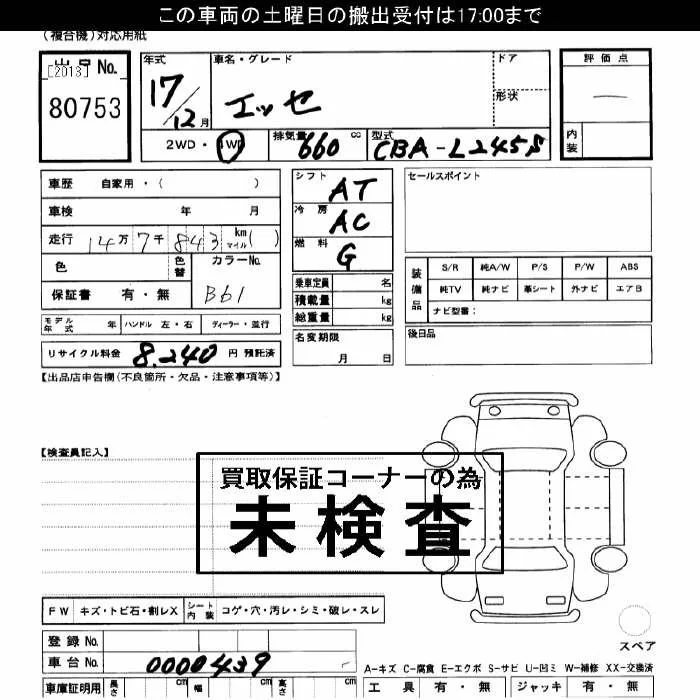 この車両の土曜日の搬出受付は17:00まで
(複合機)対応用紙
出品No.
[2013]
80753
年式
17/12月
車名・グレード
エッセ
ドア
形状
評価点
—
内装
2WD・4WD
排気量 660 cc
型式 CBA-L245S
車歴 自家用・( )
車検 年 月
走行 14万7千843 km マイル( )
色
色替
カラーNo.
B61
保証書 有・無
シフト AT
冷房 AC
燃料 G
乗車定員 名
積載量 kg
総重量 kg
セールスポイント
装備品
S/R 純A/W P/S P/W ABS
純TV 純ナビ 革シート 外ナビ エアB
ナビ型番:
モデル年式 年 ハンドル 左・右 ディーラー・並行
名変期限
月 日
後日品
リサイクル料金 8,240 円 預託済
【出品店申告欄(不良箇所・欠品・注意事項等)】
【検査員記入】
買取保証コーナーの為
未検査
FW キズ・トビ石・割レX シート内装 コゲ・穴・汚レ・シミ・破レ・スレ
スペア
登録No.
車台No. 0000439
A-キズ C-腐食 E-エクボ S-サビ U-凹ミ W-補修 XX-交換済
車庫証明用 長さ cm 幅 cm 高さ cm
工具 有・無 ジャッキ 有・無